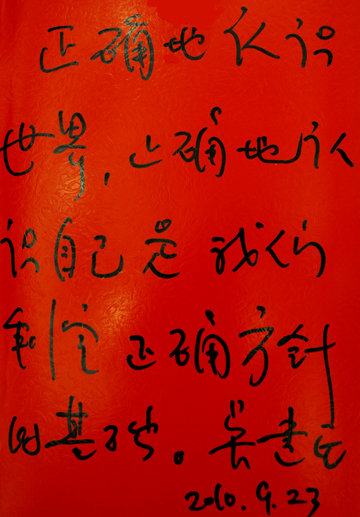 正确地认识
世界，正确地认
识自己是我们
制定正确方針
的基础。吴建民
2010.9.23